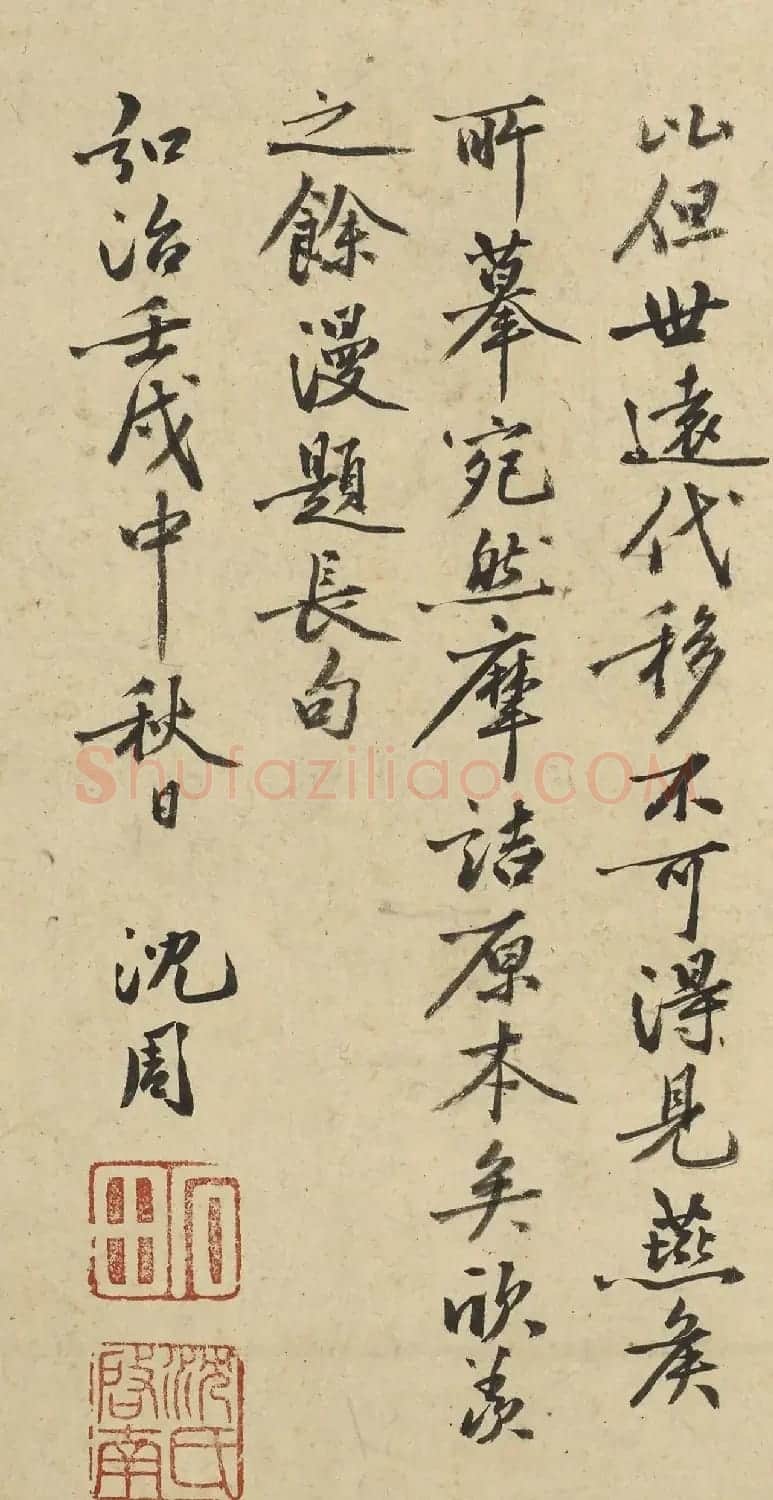 以但世遠代移不可得見燕矦
所摹宛然摩詰原本矣欣羨
之餘漫題長句
弘治壬戌中秋日 沈周
石田
沈氏啓南
Shufaziliao.COM